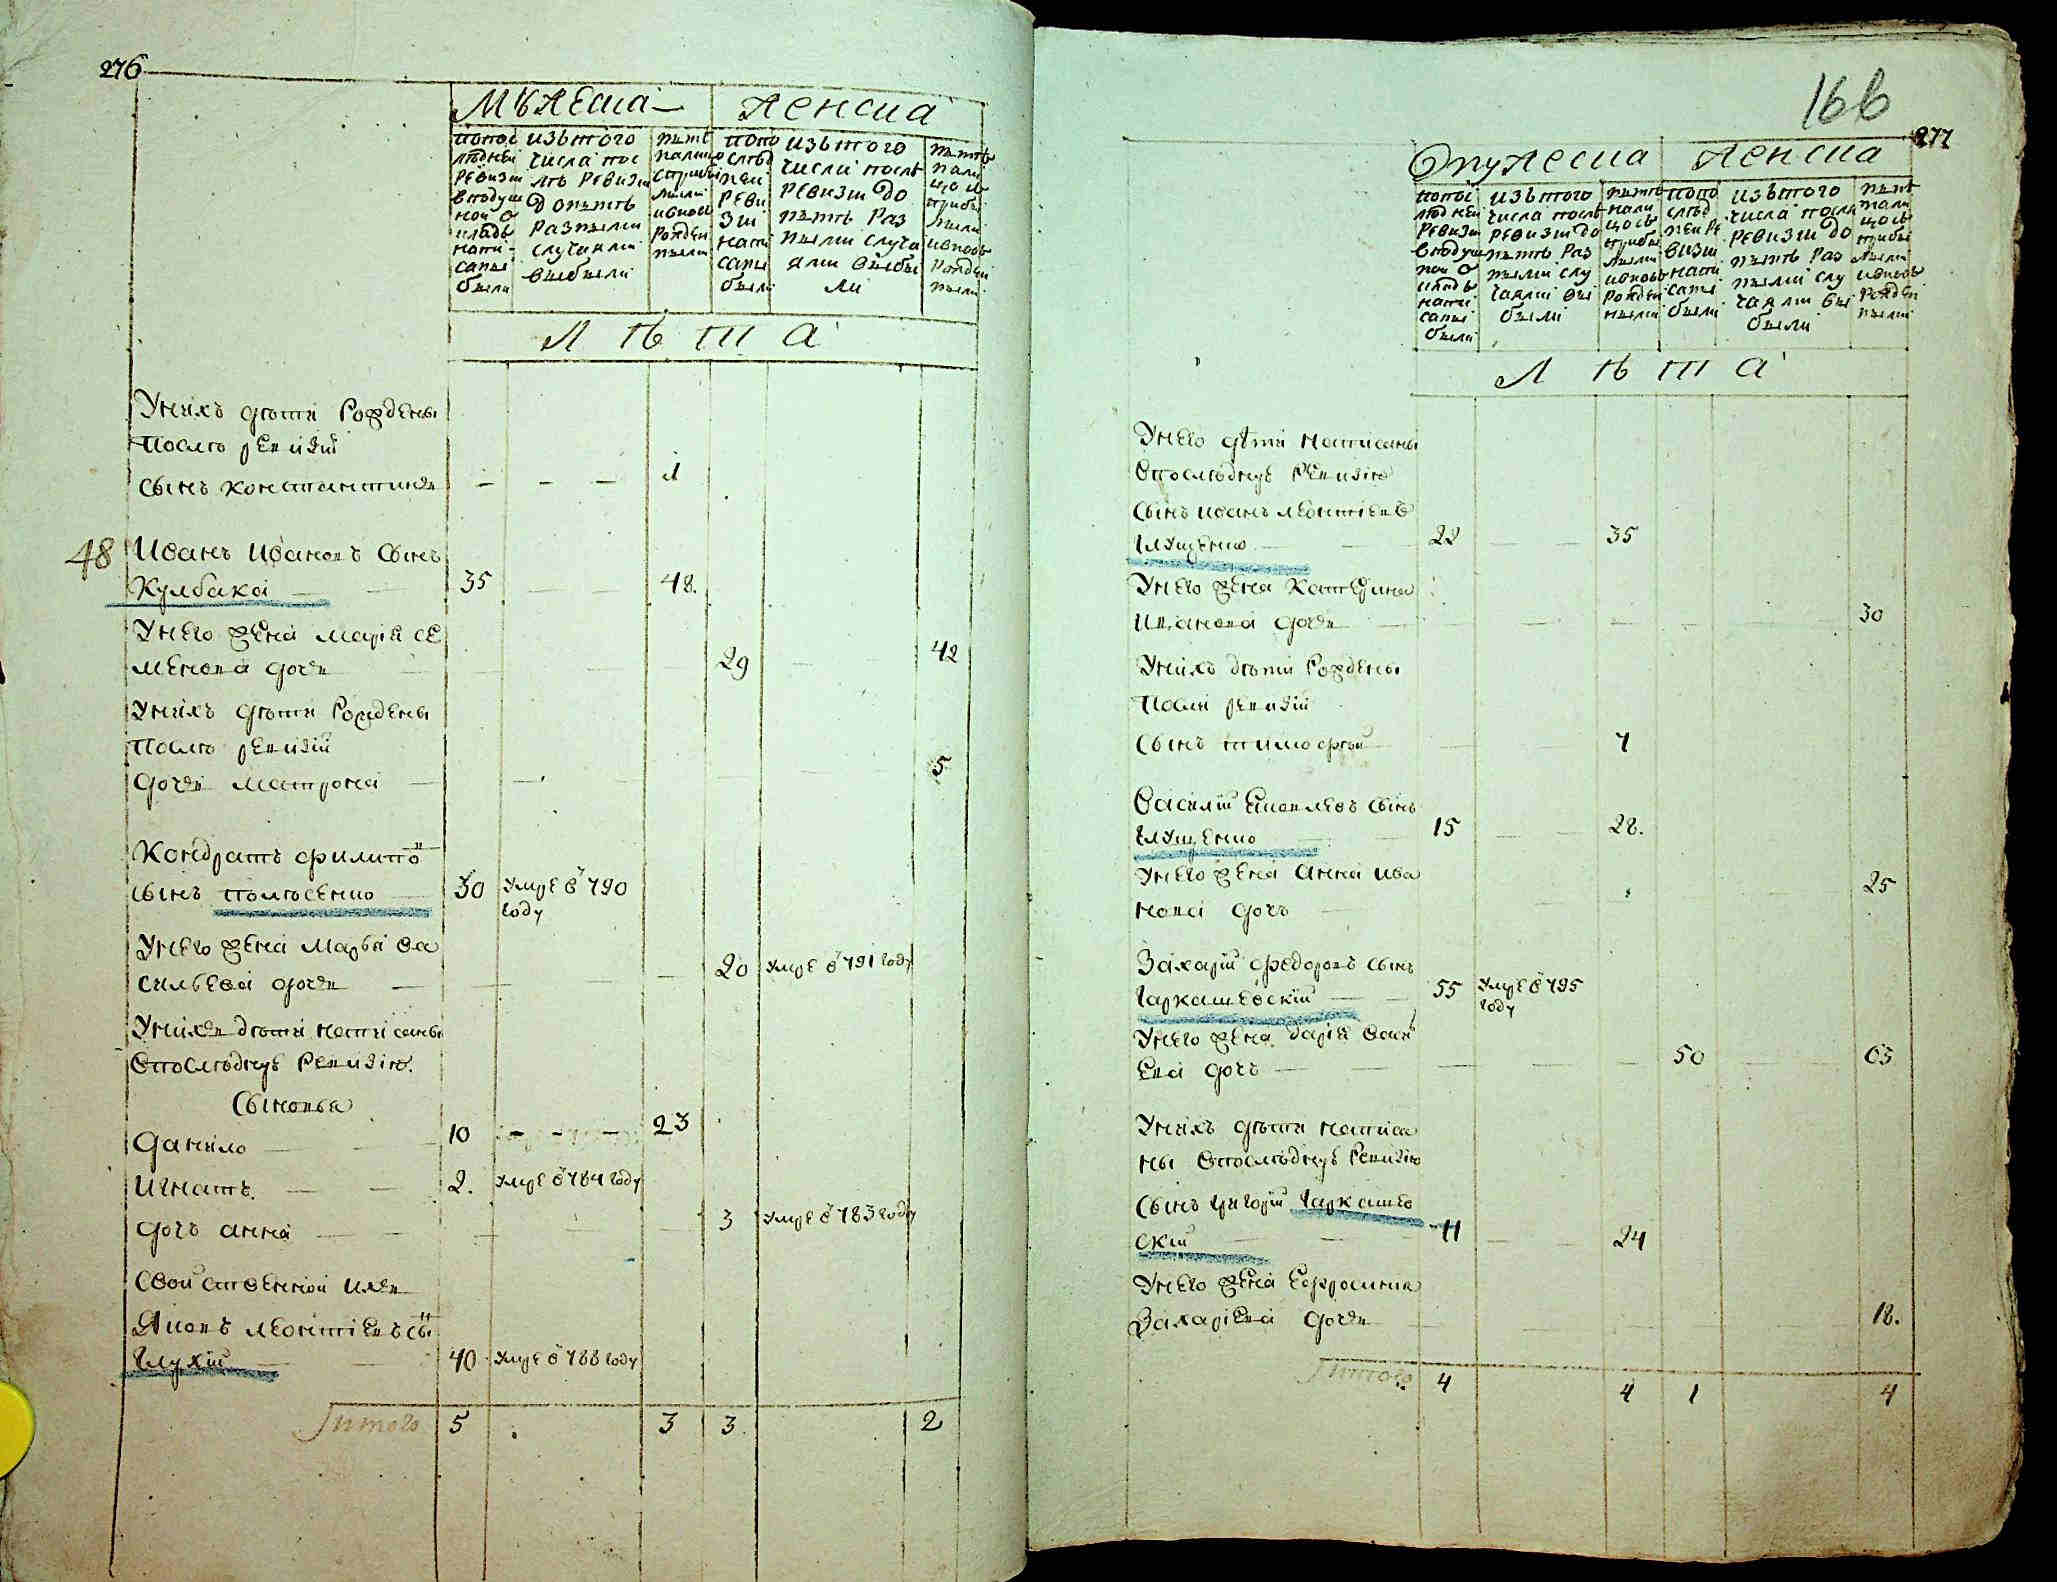 276
Мужеска
Женска
по последней ревизии в подушной окладъ написаны были
изъ того числа после ревизии до ныне разными случаями выбыли
ныне налицо с прибылыми и вновь рожденными
по последней ревизии написаны были
изъ того числа после ревизии до ныне разными случаями выбыли
ныне налицо с прибылыми и вновь рожденными
Лѣта
У нихъ дѣти рождены
послѣ ревизіи
сынъ константинъ - - - 1
48 Иванъ Ивановъ сынъ
Кулбака 35 48.
У него жена Марія Се
менова дочь 29 42
У нихъ дѣти рождены
послѣ ревизіи
дочь матрона 5
Кондратъ филипо в
сынъ полтосенко 30 умре в 790 году
У него жена Марья Ва
сильева дочь 20 умре в 791 году
У нихъ дѣти написаны
в последную ревизію.
Сыновья
Данило 10 - - - 23
Игнатъ. 2. умре в 784 году
дочь анна 3 умре в 783 году
Свойственной ихъ
Яковъ леонтіевъ сы н
глухій 40 умре в 788 году
Итого 5 3 3 2
166
277
Мужеска
Женска
по последней ревизии в подушной окладъ написаны были
изъ того числа после ревизии до ныне разными случаями выбыли
ныне налицо с прибылыми и вновь рожденными
по последней ревизии написаны были
изъ того числа после ревизии до ныне разными случаями выбыли
ныне налицо с прибылыми и вновь рожденными
Лѣта
У него дѣти написаны
в последную ревизію
Сынъ иванъ леонтіевъ
глущенко 22 35
У него жена Катерина
Иванова дочь 30
У нихъ дѣти рождены
послѣ ревизіи
Сынъ тимофей 7
Василій Яковлевъ сынъ
глущенко 15 28.
У него жена анна ива
нова дочь 25
Захарій федоровъ сынъ
гаркашевскій 55 умре в 795 году
У него жена дарія
ева дочь 50 63
У нихъ дѣти написа
ны в последную ревизію
Сынъ григорій гаркашев
скій 11 24
У него жена Ефросинія
Захаріева дочь 18.
Итого 4 4 1 4